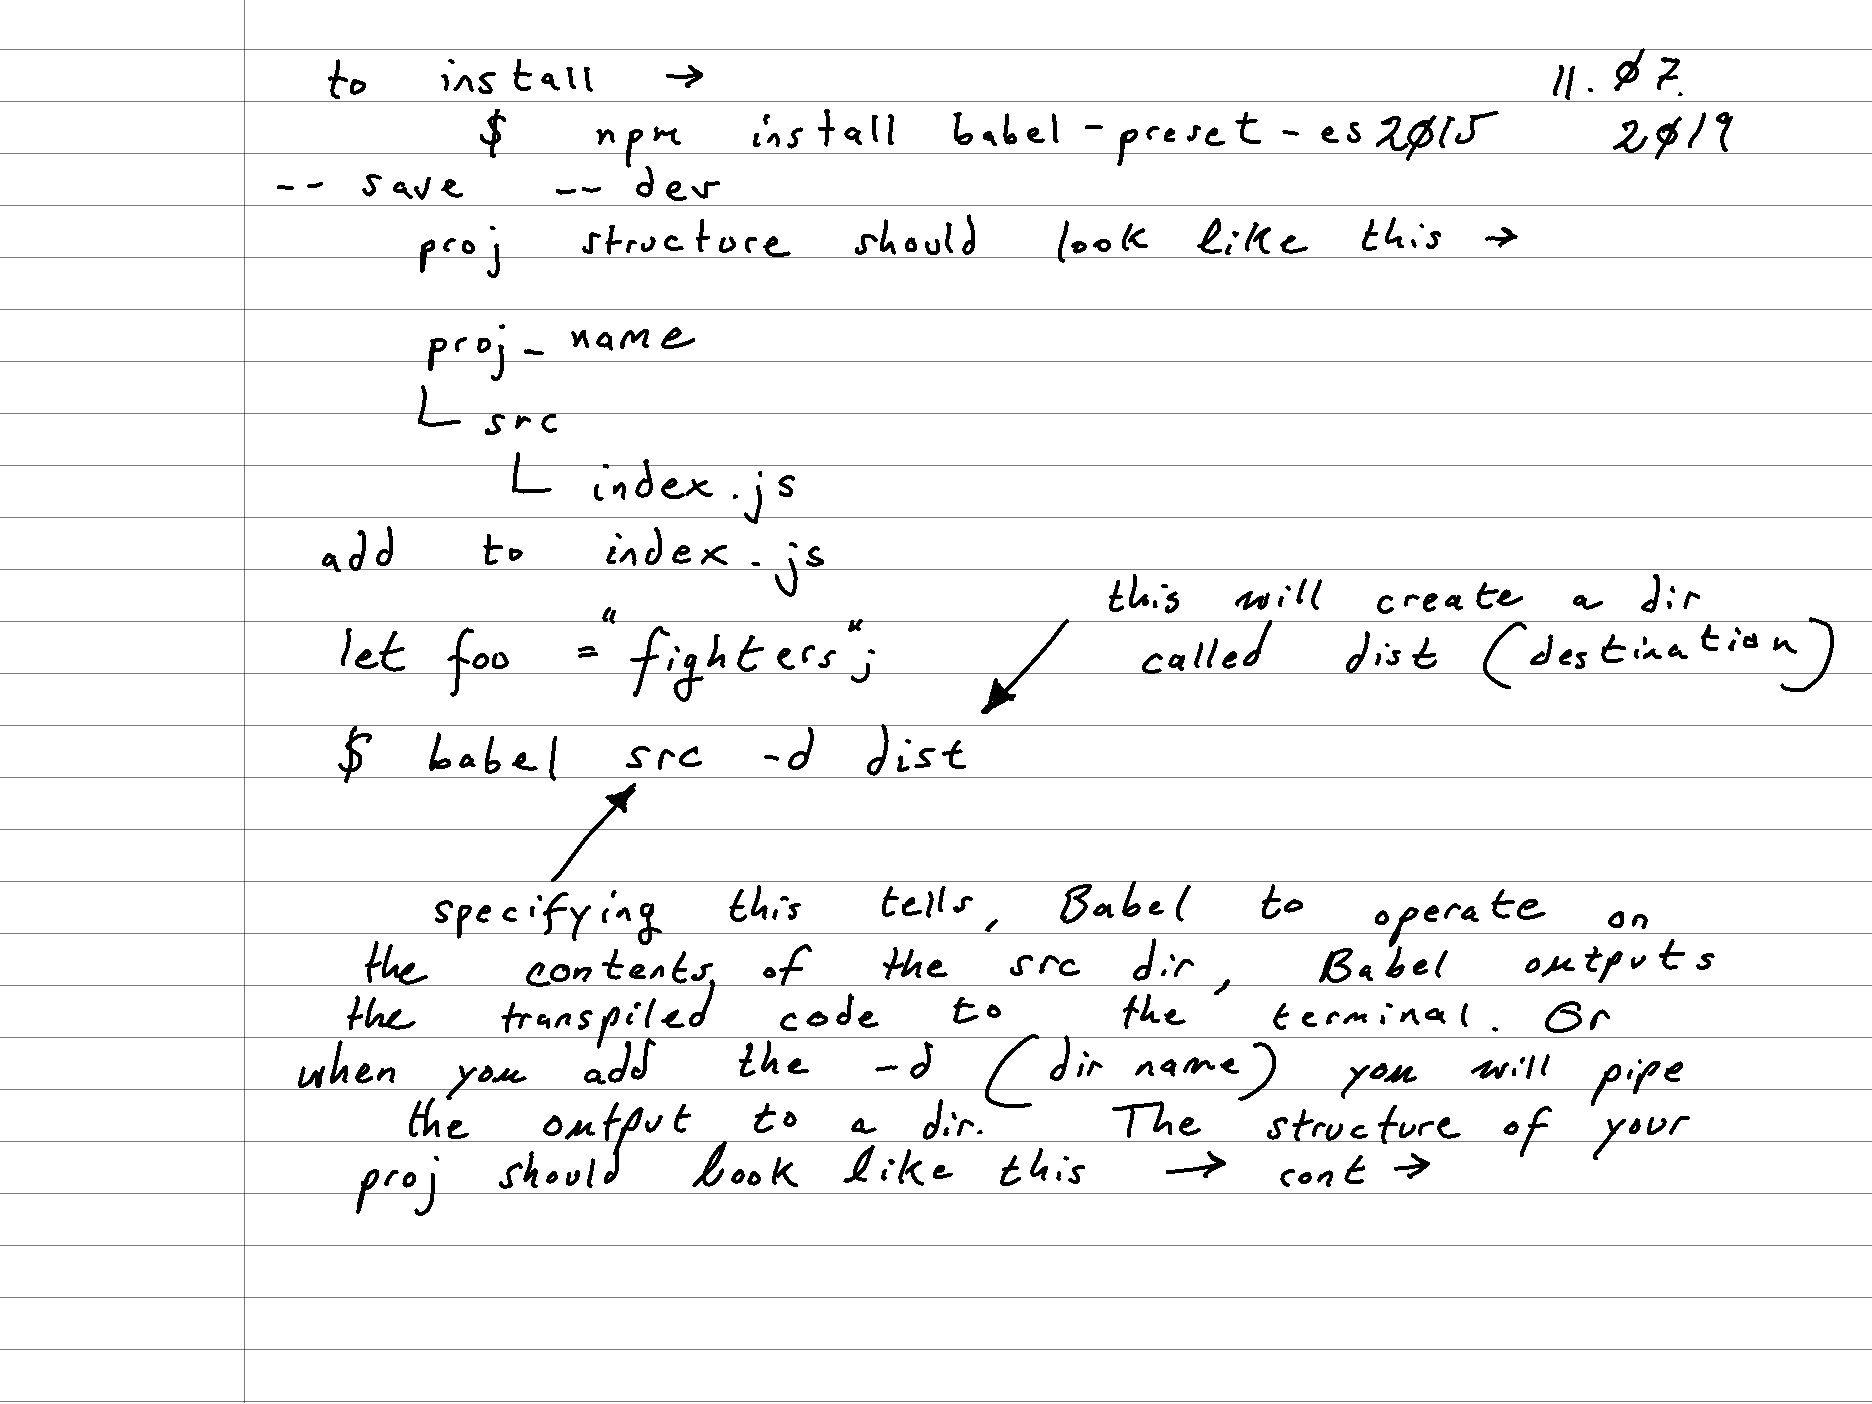 to install → 11.07.
$ npm install babel-preset-es2015 2019
-- save -- dev
proj structure should look like this →
proj_name
└ src
└ index.js
add to index.js
this will create a dir
let foo = "fighters";
called dist (destination)
$ babel src -d dist
specifying this tells, Babel to operate on
the contents, of the src dir, Babel outputs
the transpiled code to the terminal. Or
when you add the -d (dir name) you will pipe
the output to a dir. The structure of your
proj should look like this → cont →